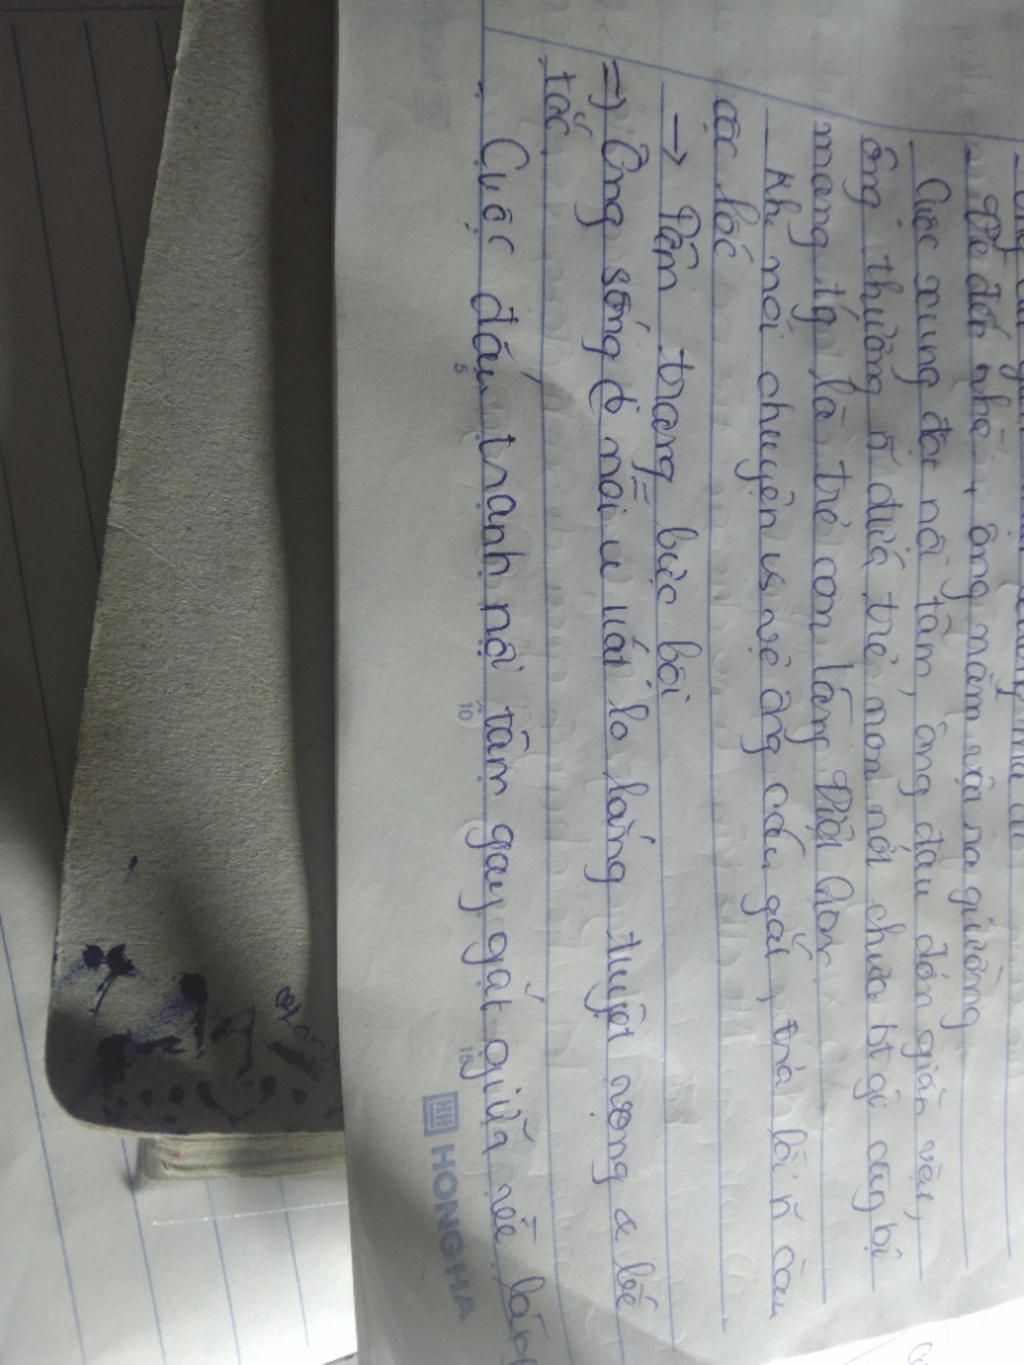 - Về đến nhà, ông nằm vật ra giường
- Cuộc xung đột nội tâm, ông đau đớn giằn vặt,
ông thương ~ đứa trẻ non nớt chưa bt gì cũng bị
mang tg là trẻ con làng Việt Gian
- Khi nói chuyện vs vợ ông cáu gắt, trả lời ~ câu
cộc lốc
→ Tâm trạng bực bội
=) Ông sống ở nỗi u uất lo lắng tuyệt vọng & bế
tắc
. Cuộc đấu tranh nội tâm gay gắt giữa về làng
5
10
15
HH HONGHA